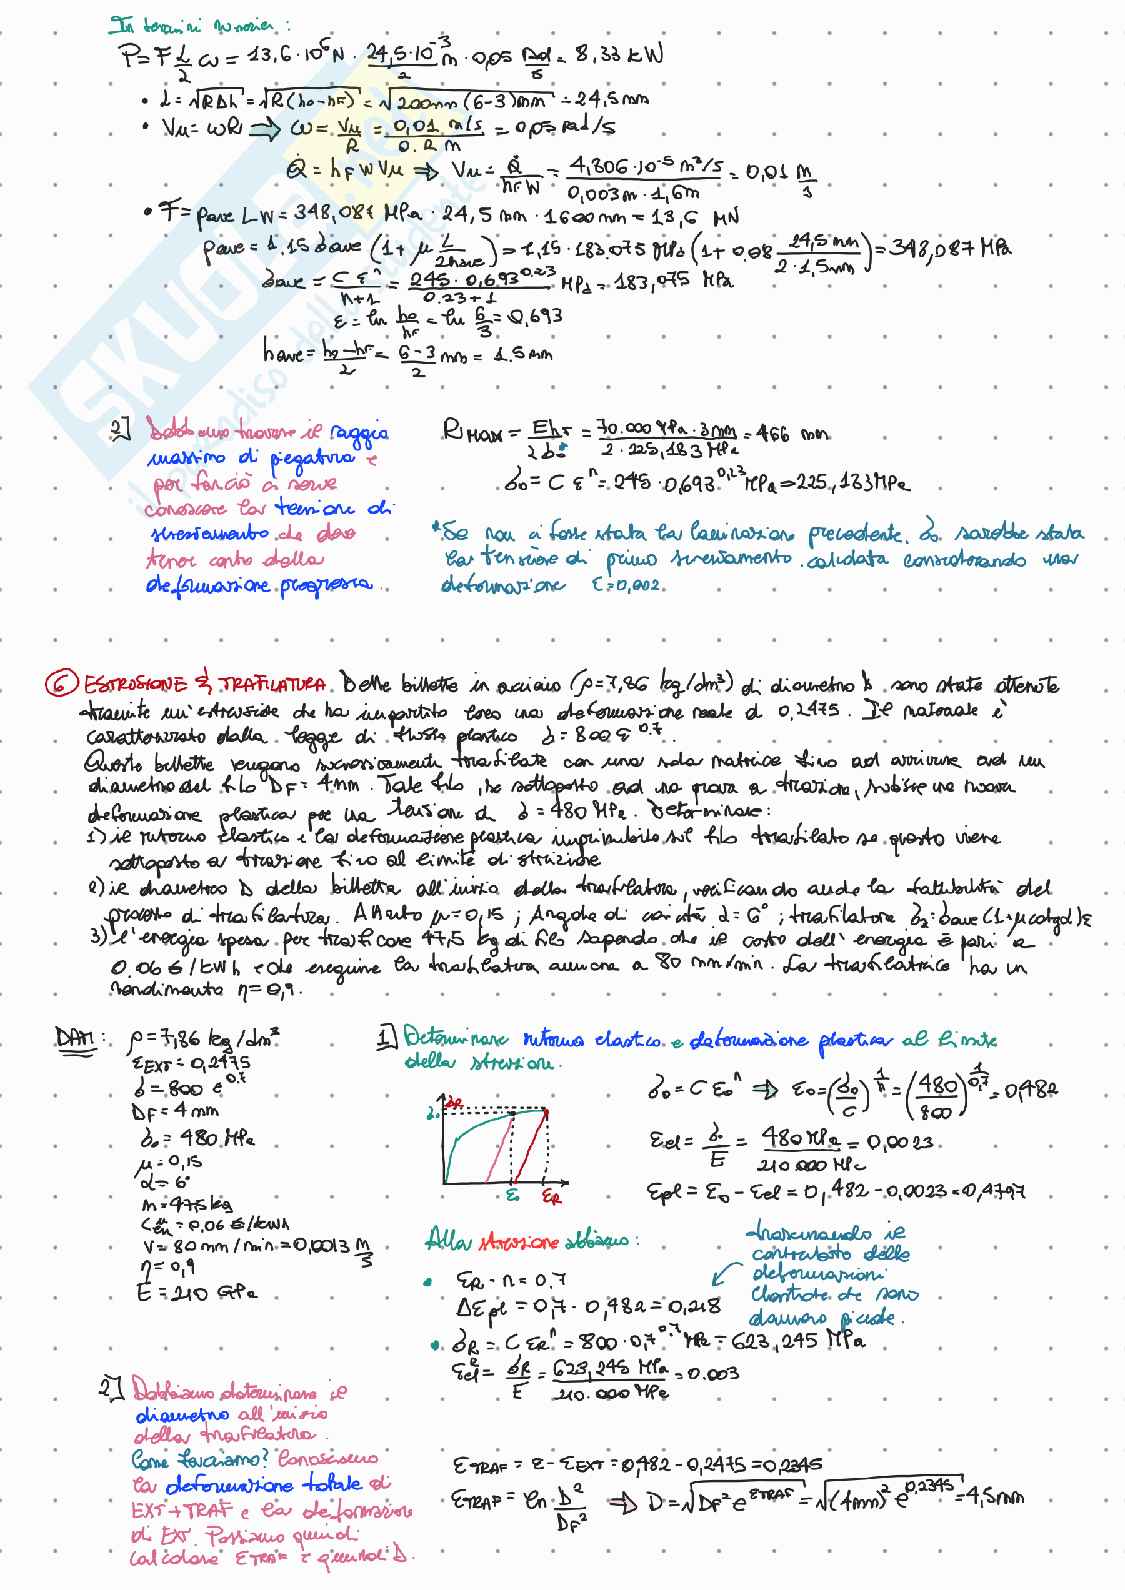 In termini numerici:
P = F L/2 ω = 13,6·10⁶ N · 24,5·10⁻³/2 m · 0,05 rad/s = 8,33 kW
• L = √RΔh = √R(h0-hF) = √200mm (6-3)mm = 24,5 mm
• Vu = ωR ⇒ ω = Vu/R = 0,01 m/s / 0.2 m = 0,05 rad/s
Q̇ = hF W Vu ⇒ Vu = Q̇/hF W = 4,806·10⁻⁵ m³/s / 0,003m · 1,6m = 0,01 m/s
• F = pave LW = 348,087 MPa · 24,5 mm · 1600 mm = 13,6 MN
pave = 1.15 σave (1+ μ L/2have) = 1,15 · 183.075 MPa (1+ 0.08 24,5 mm / 2·1,5mm) = 348,087 MPa
σave = C εⁿ/n+1 = 245 · 0,693^0,23 / 0.23+1 MPa = 183,075 MPa
ε = ln h0/hF = ln 6/3 = 0,693
have = h0-hF/2 = 6-3/2 mm = 1.5 mm
2] Dobbiamo trovare il raggio
massimo di piegatura e
per farciò ci serve
conoscere la tensione di
snervamento che deve
tener conto della
deformazione progressa.
RMAX = E hF/2 σ0* = 70.000 MPa · 3mm / 2 · 225,183 MPa = 466 mm
σ0 = C εⁿ = 245 · 0,693^0,23 MPa = 225,183 MPa
*Se non ci fosse stata la laminazione precedente, σ0 sarebbe stata
la tensione di primo snervamento calcolata considerando una
deformazione ε=0,002.
⑥ ESTRUSIONE & TRAFILATURA. Delle billette in acciaio (ρ=7,86 kg/dm³) di diametro D sono state ottenute
tramite un'estrusione che ha impartito loro una deformazione reale di 0,2475. Il materiale è
caratterizzato dalla legge di flusso plastico σ = 800 ε^0.7.
Queste billette vengono successivamente trafilate con una sola matrice fino ad arrivare ad un
diametro del filo DF = 4mm. Tale filo, se sottoposto ad una prova a trazione, subisce una nuova
deformazione plastica per una tensione di σ = 480 MPa. Determinare:
1) il ritorno elastico e la deformazione plastica imprimibile sul filo trafilato se questo viene
sottoposto a trazione fino al limite di strizione
2) il diametro D della billetta all'inizio della trafilatura, verificando anche la fattibilità del
processo di trafilatura. Attrito μ=0,15; Angolo di conicità α=6°; trafilatura σ2=σave(1+μcotgα)ε
3) l'energia spesa per trafilare 47,5 kg di filo sapendo che il costo dell'energia è pari a
0.06 €/kWh e che eseguire la trafilatura avviene a 80 mm/min. La trafilatrice ha un
rendimento η=0,9.
DATI:
ρ = 7,86 kg/dm³
εEXT = 0,2475
σ = 800 ε^0.7
DF = 4 mm
σ0 = 480 MPa
μ = 0,15
α = 6°
m = 47,5 kg
Cen = 0,06 €/kWh
V = 80 mm/min = 0,0013 m/s
η = 0,9
E = 210 GPa
1] Determinare ritorno elastico e deformazione plastica al limite
della strizione.
σ0 = C ε0ⁿ ⇒ ε0 = (σ0/C)^1/n = (480/800)^1/0,7 = 0,482
εel = σ0/E = 480 MPa / 210 000 MPa = 0,0023
εpl = ε0 - εel = 0,482 - 0,0023 = 0,4797
σR
σ0
ε0
εR
Alla strizione abbiamo:
• εR = n = 0.7
Δεpl = 0,7 - 0,482 = 0,218
trascurando il
contributo delle
deformazioni
elastiche che sono
davvero piccole.
• σR = C εRⁿ = 800 · 0,7^0.7 MPa = 623,245 MPa
εelᴿ = σR/E = 623,245 MPa / 210.000 MPa = 0.003
2] Dobbiamo determinare il
diametro all'inizio
della trafilatura.
Come facciamo? Conosciamo
la deformazione totale di
EXT+TRAF e la deformazione
di EXT. Possiamo quindi
calcolare εTRAF e quindi D.
εTRAF = ε - εEXT = 0,482 - 0,2475 = 0,2345
εTRAF = ln D²/DF² ⇒ D = √DF² e^εTRAF = √(4mm)² e^0,2345 = 4,5mm